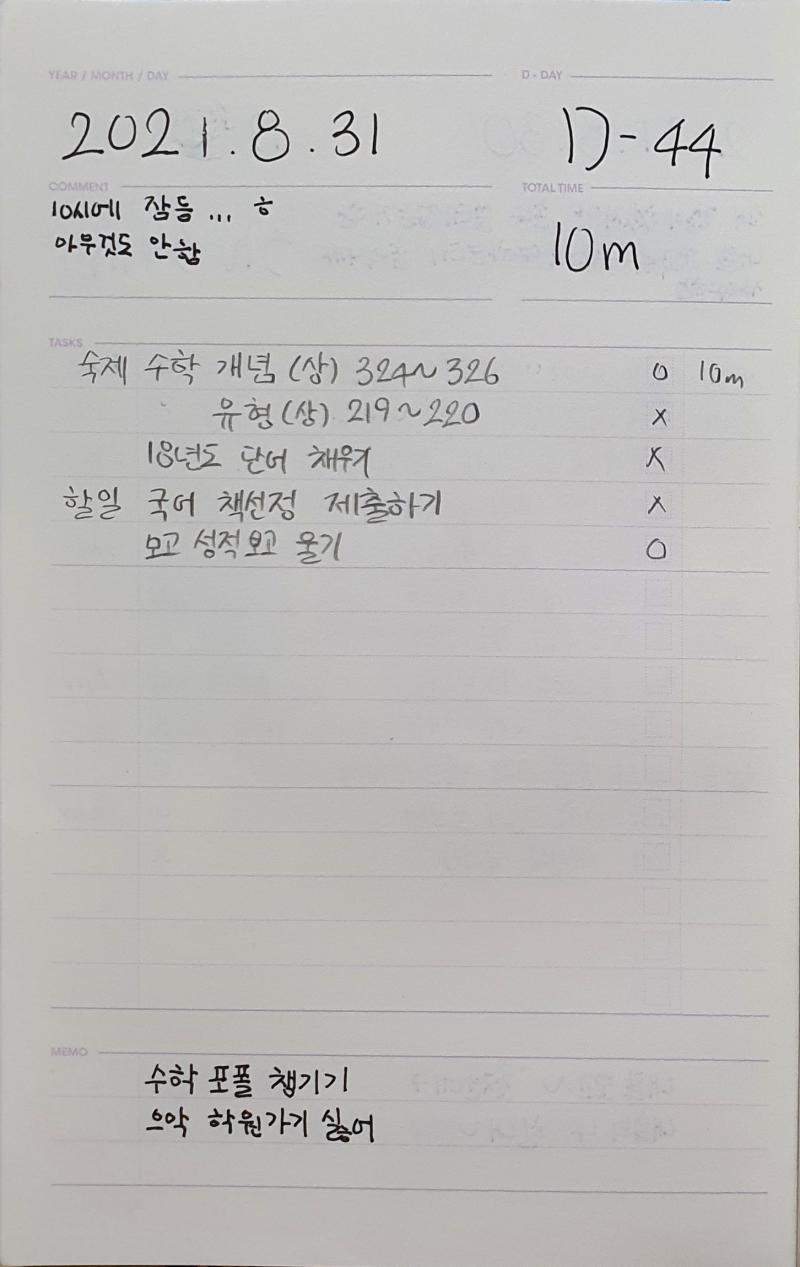 YEAR / MONTH / DAY
D - DAY
2021. 8. 31
D-44
COMMENT
TOTAL TIME
10시에 잠듬 ... ㅎ
아무것도 안함
10m
TASKS
숙제 수학 개념 (상) 324~326 O 10m
유형(상) 219~220 X
18년도 단어 채우기 X
할일 국어 책선정 제출하기 X
모고 성적보고 울기 O
MEMO
수학 포폴 챙기기
으악 학원가기 싫어